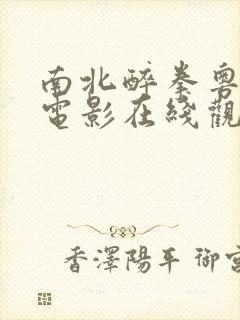 南北醉拳粵
電影在綫觀
香澤陽平 御宮